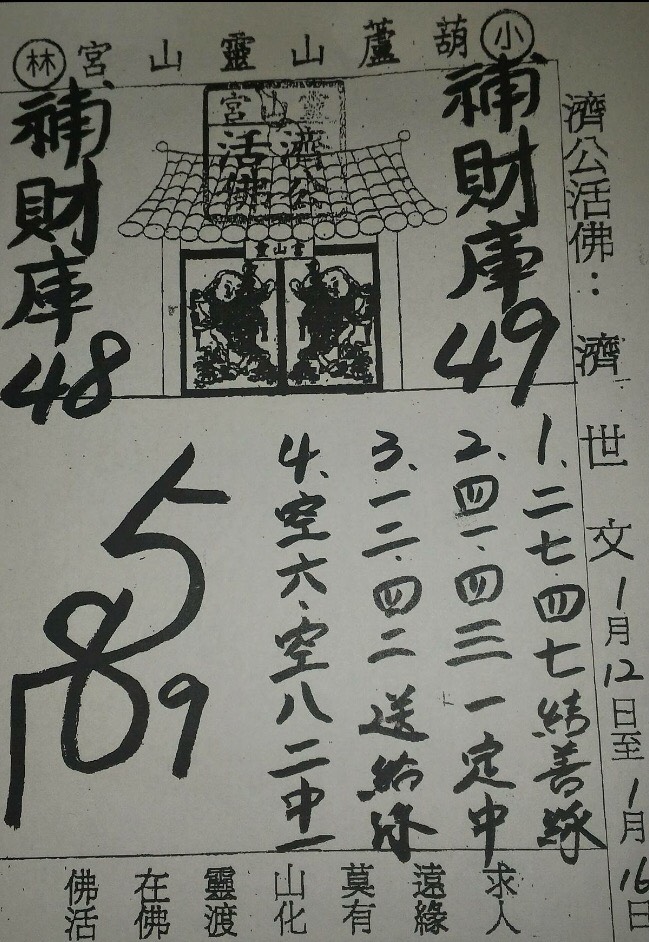 小葫蘆山靈山宮林
濟公活佛：濟世文1月12日至1月16日
補財庫49
靈山宮
濟公
活佛
靈山宮
補財庫48
1、二七.四七結善緣
2、四一.四三一定中
3、一二.四二送給緣
4、空六.空八二中一
5
789
佛在靈山莫遠求
活佛渡化有緣人